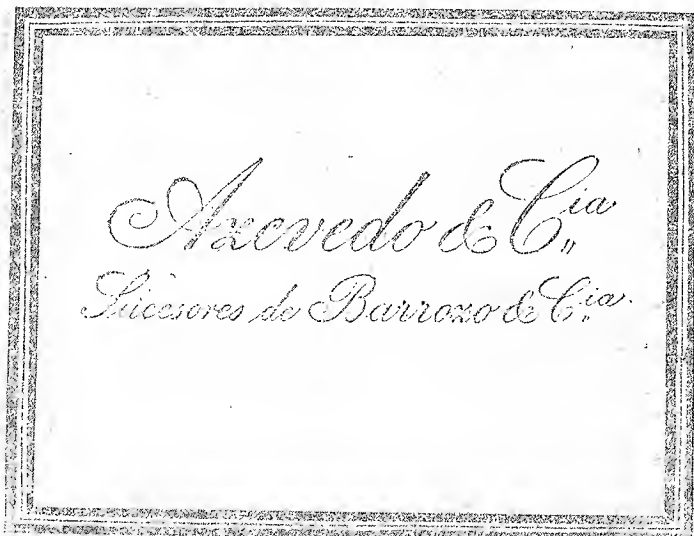 Azevedo & Cia
Sucesores de Barrozo & Cia.